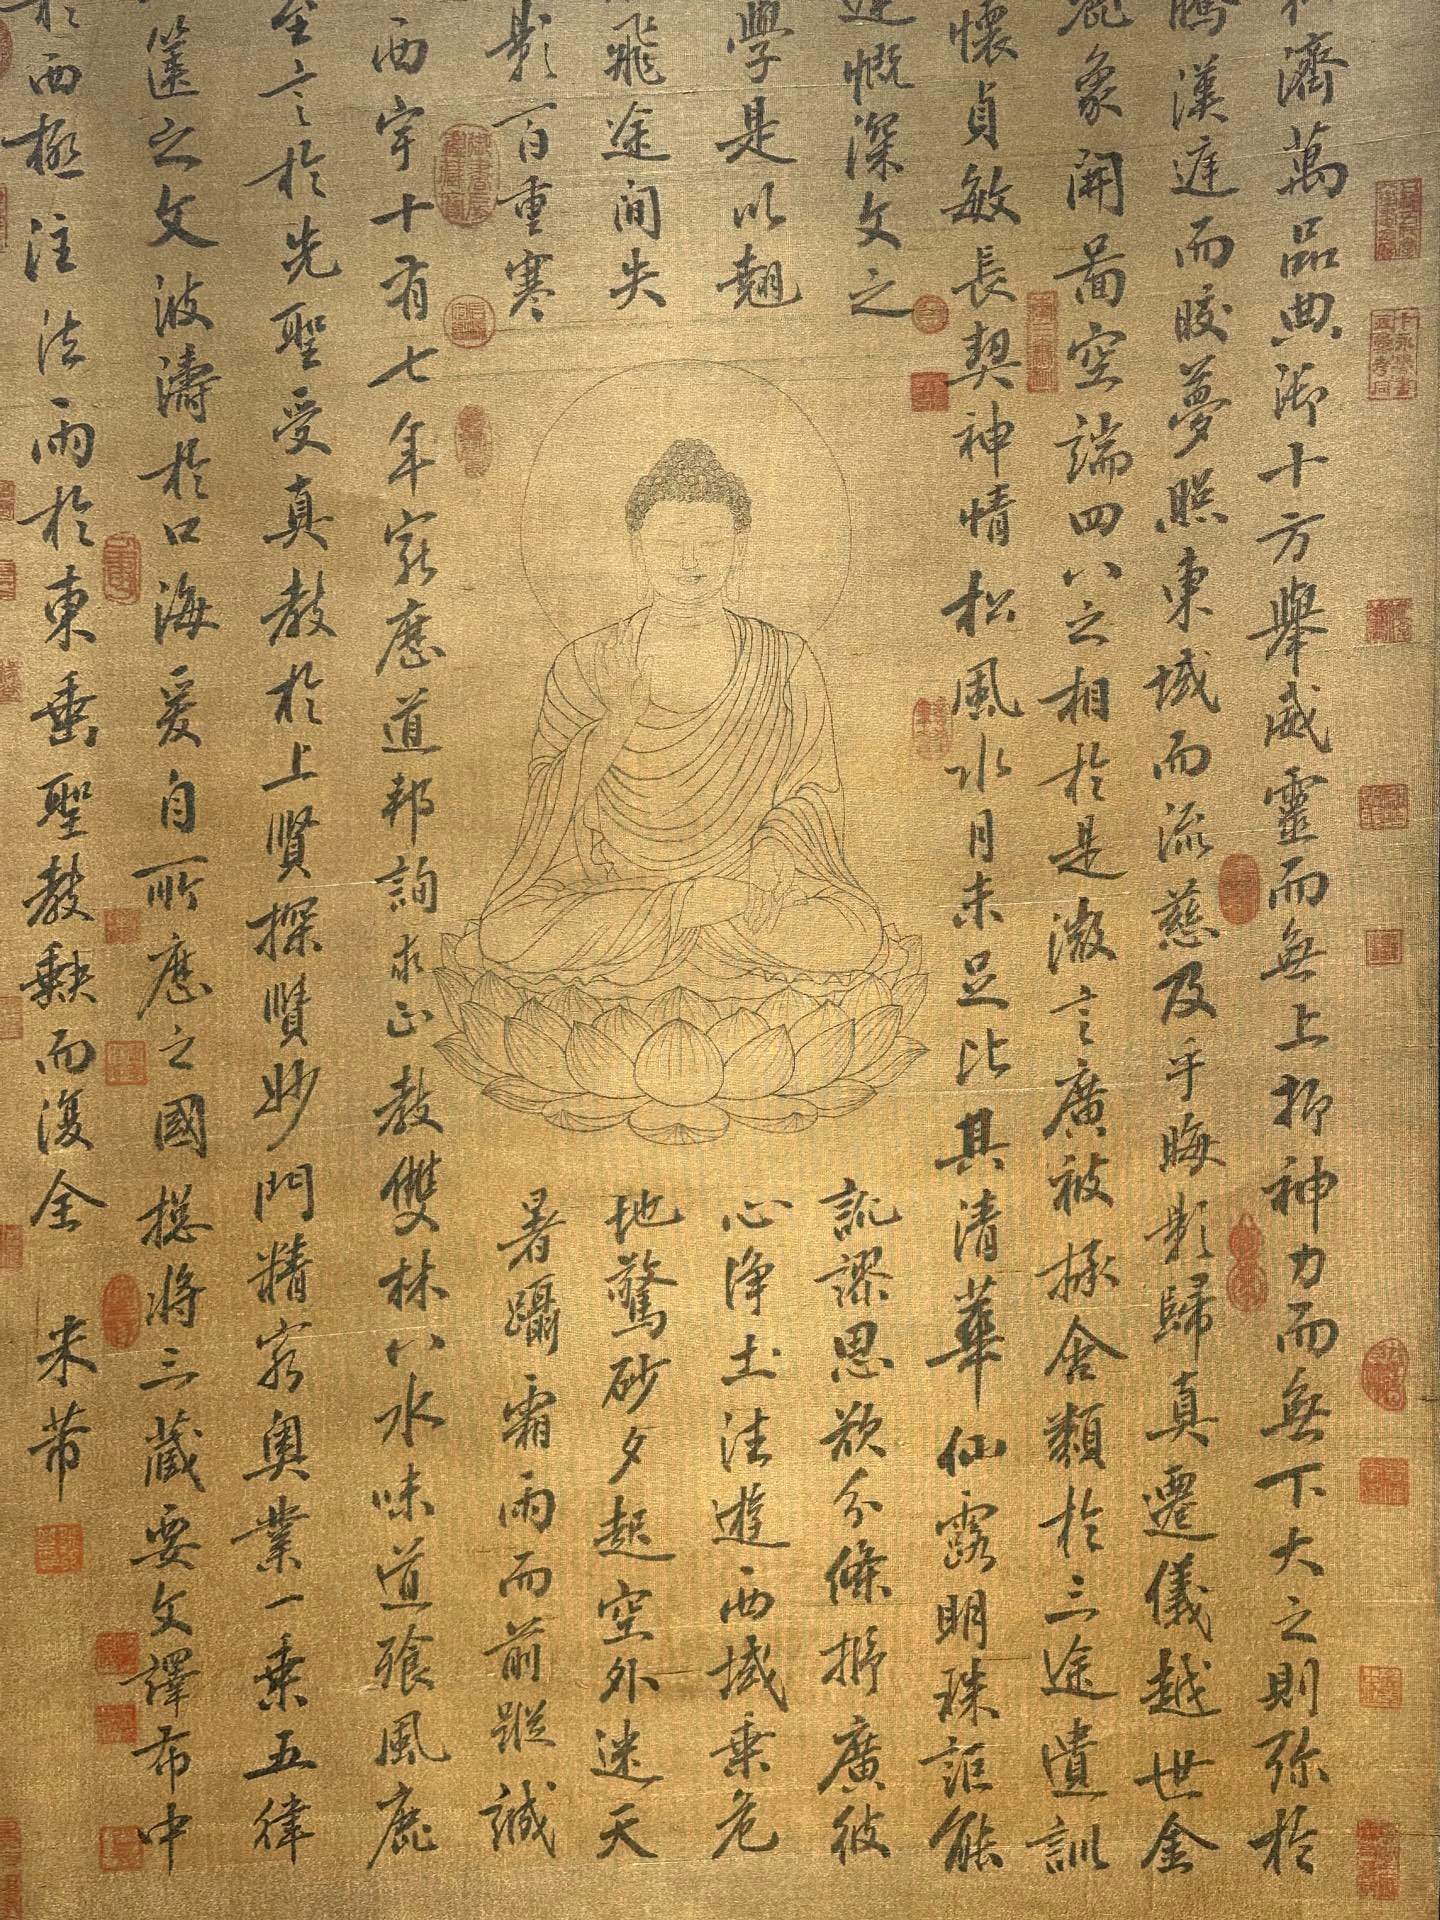 濟萬品典御十方舉威靈而無上抑神力而無下大之則弥於
騰漢庭而皎夢照東域而流慈及乎晦影歸真遷儀越世金
麗象開圖空端四八之相於是微言廣被拯含類於三途遺訓
懷貞敏長契神情松風水月未足比其清華仙露明珠詎能
慨深文之訛謬思欲分條析廣彼
學是以翹心淨土法遊西域乘危
飛途間失地驚砂夕起空外迷天
影百重寒暑躡霜雨而前蹤誠
西宇十有七年窮歷道邦詢求正教雙林八水味道飡風鹿
至言於先聖受真教於上賢探賾妙門精窮奧業一乘五律
篋之文波濤於口海爰自所歷之國揔將三藏要文譯布中
於西極注法雨於東垂聖教缺而復全 米芾